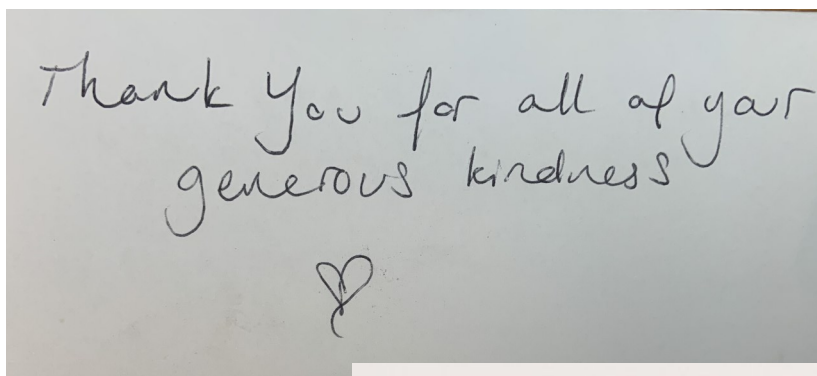 Thank You for all of your
generous kindness